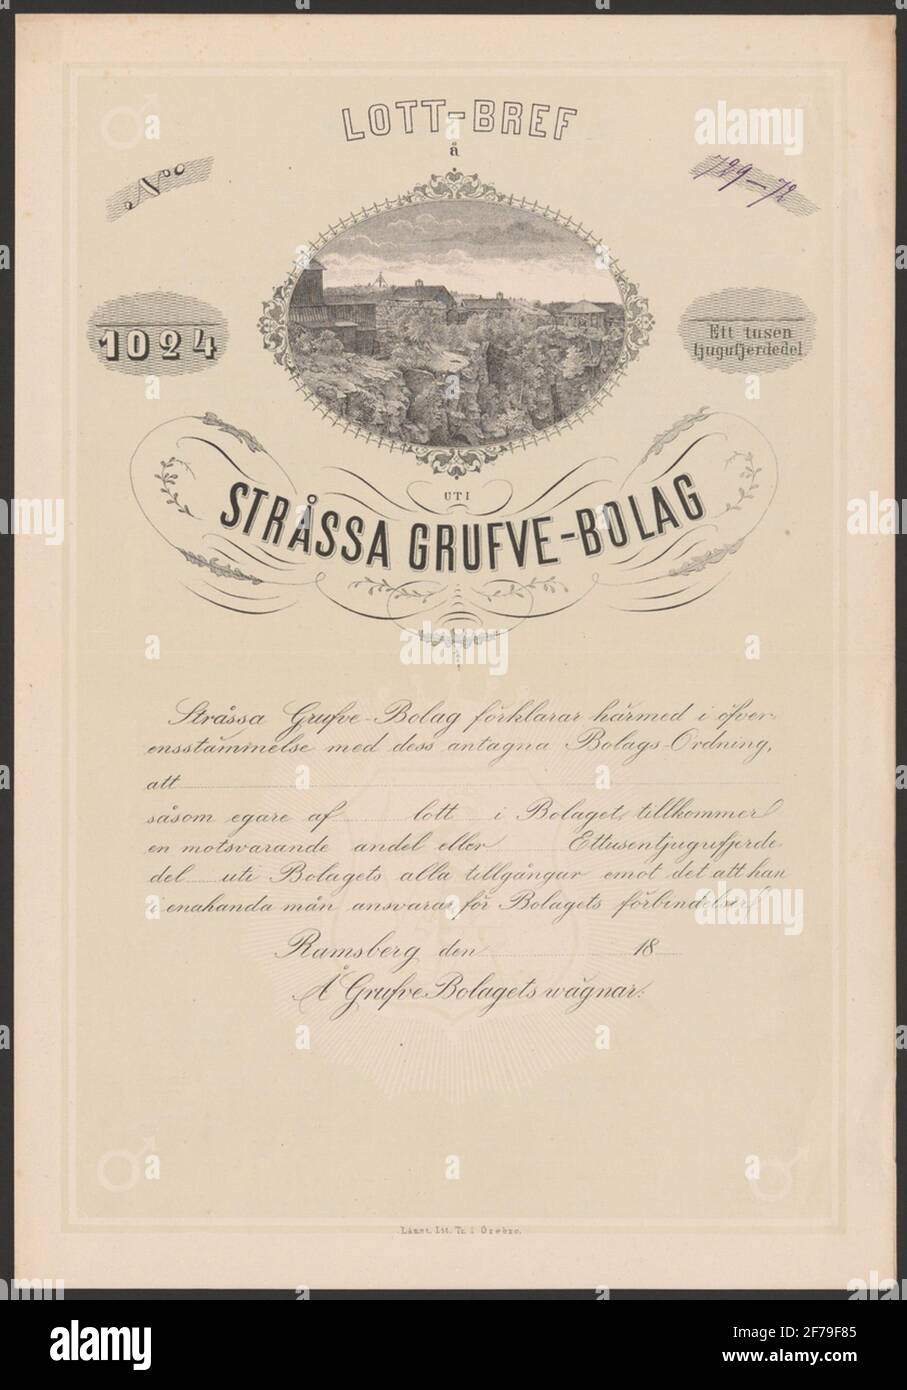 LOTT-BREF
å
No
729-72
1024
Ett tusen
tjugufjerdedel
UTI
STRÅSSA GRUFVE-BOLAG
Stråssa Grufve-Bolag förklarar härmed i öfver-
ensstämmelse med dess antagna Bolags-Ordning,
att
såsom egare af lott i Bolaget, tillkommer
en motsvarande andel eller Ettusentjugufjerde-
del uti Bolagets alla tillgångar emot det att han
i enahanda mån ansvarar för Bolagets förbindelser.
Ramsberg den 18
Å Grufve Bolagets wägnar:
Länst. Lit. Tr. i Örebro.
alamy
Image ID: 2F79F85
www.alamy.com